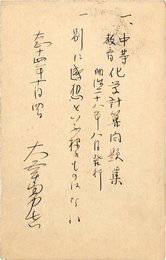 一、中等教育 化学計算問題集
明治三十八年八月発行
一 別に感想といふ様のものはない
大正四年十月四日
大幸勇吉